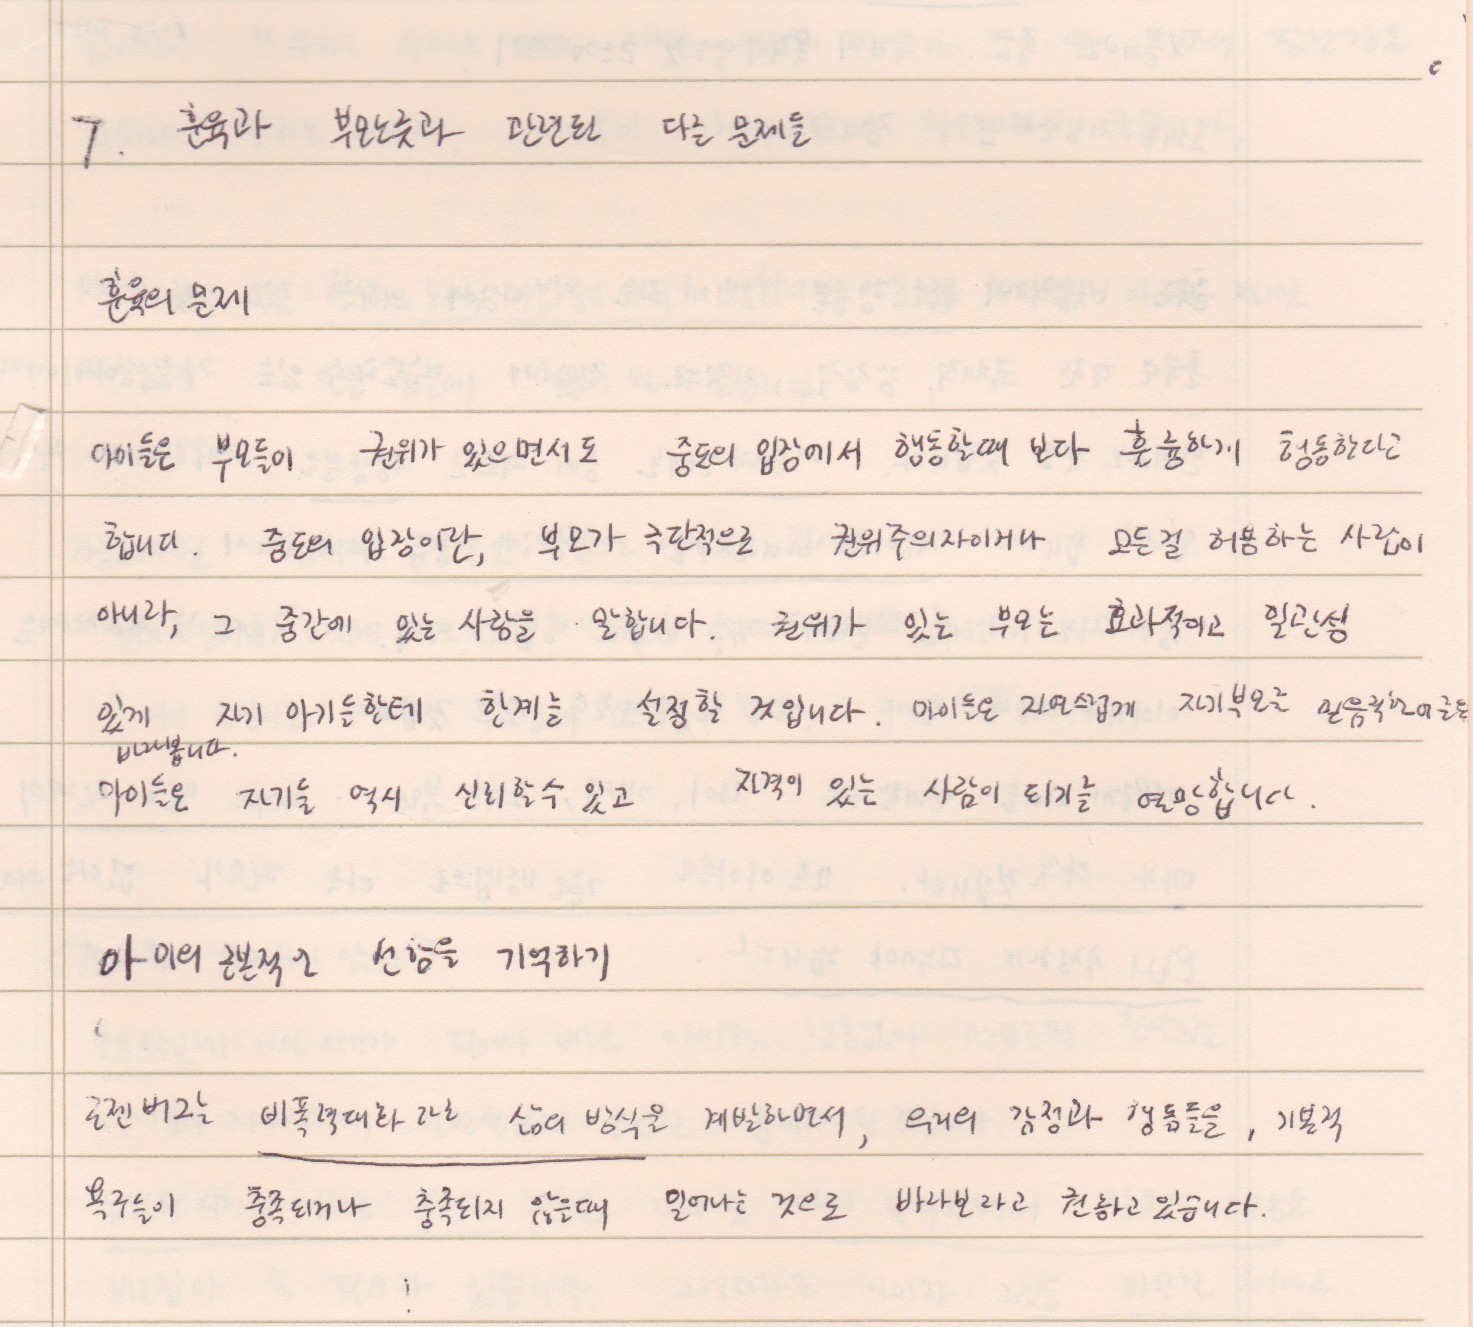 7. 훈육과 부모노릇과 관련된 다른 문제들
훈육의 문제
아이들은 부모들이 권위가 있으면서도 중도의 입장에서 행동할때 보다 훌륭하게 행동한다고
합니다. 중도의 입장이란, 부모가 극단적으로 권위주의자이거나 모든걸 허용하는 사람이
아니라, 그 중간에 있는 사람을 말합니다. 권위가 있는 부모는 효과적이고 일관성
있게 자기 아기들한테 한계를 설정할 것입니다. 아이들은 자연스럽게 자기부모를
바라봅니다.
아이들은 자기들 역시 신뢰할수 있고 자격이 있는 사람이 되기를 열망합니다.
아이의 근본적인 선함을 기억하기
로젠버그는 비폭력대화라는 삶의 방식을 계발하면서, 우리의 감정과 행동들을, 기본적
욕구들이 충족되거나 충족되지 않을때 일어나는 것으로 바라보라고 권하고 있습니다.